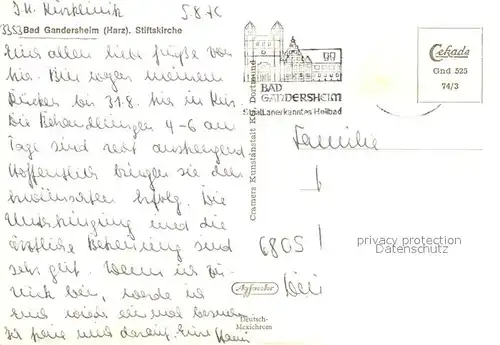 I. H. Kurklinik 5.8.76
3353 Bad Gandersheim (Harz). Stiftskirche
Euch allen liebe Grüße von
hier. Bin wegen meinem
Rücken bis 31.8. hier in Kur.
Die Behandlungen 4-6 am
Tage sind sehr anstrengend
Hoffentlich bringen sie den
erwünschten Erfolg. Die
Unterbringung und die
ärztliche Betreuung sind
sehr gut. Wenn ich zu-
rück bin, werde ich
Euch wieder einmal besuchen
Ich freue mich darauf. Eure
Cramers Kunstanstalt KG, Dortmund
BAD
GANDERSHEIM
Staatl. anerkanntes Heilbad
Cekade
Gnd 525
74/3
Familie
6805
bei
privacy protection
Datenschutz
Agfacolor
Deutsch-
Mexichrom